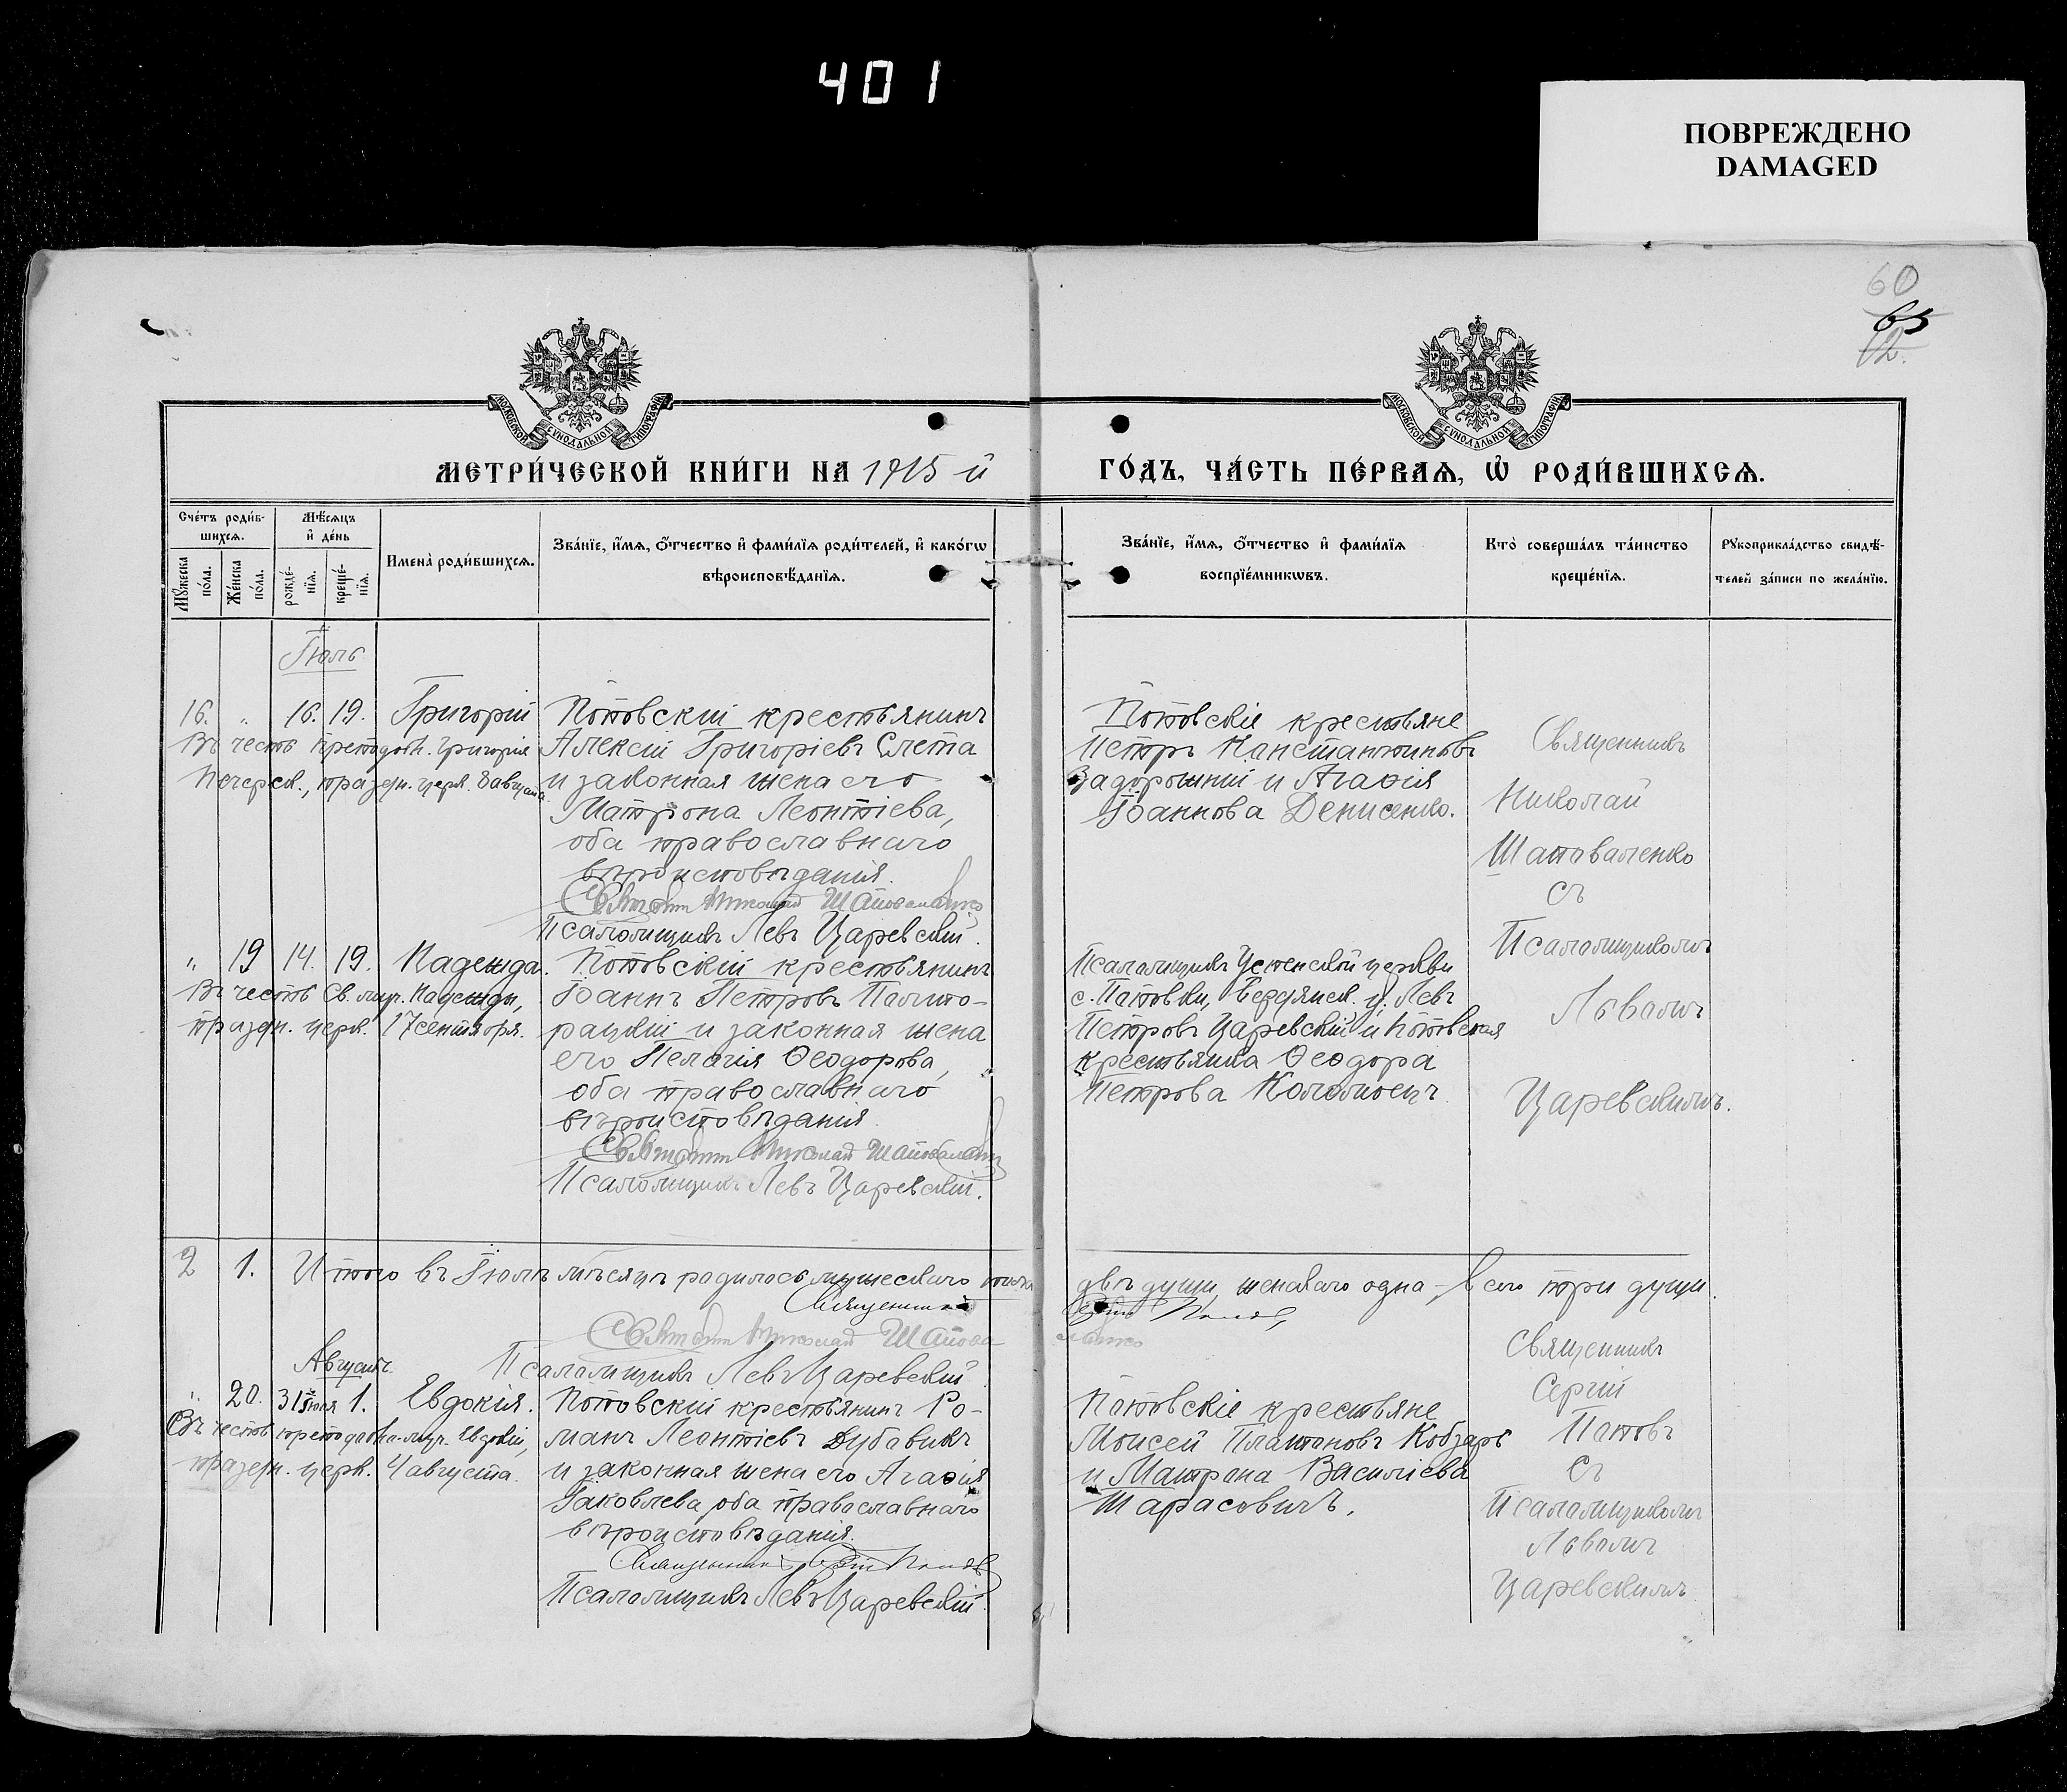 401
ПОВРЕЖДЕНО
DAMAGED
60
65
12.
МОСКОВСКОЙ СѴНОДАЛЬНОЙ ТИПОГРАФІИ
МОСКОВСКОЙ СѴНОДАЛЬНОЙ ТИПОГРАФІИ
МЕТРИ́ЧЕСКОЙ КНИ́ГИ НА 1915 й
ГО́ДЪ, ЧА́СТЬ ПЕ́РВАѦ, Ѡ҆ РОДИ́ВШИХСѦ.
Сче́тъ роди́в-
шихсѧ.
Мꙋ́жеска по́ла.
Же́нска по́ла.
Мѣ́сѧцъ
и҆ де́нь
рожде́-
нїѧ.
креще́-
нїѧ.
И҆мена̀ роди́вшихсѧ.
Зва́нїе, и҆́мѧ, ѻ҆́тчество и҆ фами́лїѧ роди́телей, и҆ како́гѡ
вѣроисповѣ́данїѧ.
Зва́нїе, и҆́мѧ, ѻ҆́тчество и҆ фами́лїѧ
воспрїе́мникѡвъ.
Кто̀ соверша́лъ та́инство
креще́нїѧ.
Рꙋкоприкла́дство свидѣ́-
телей за́писи по жела́нїю.
Іюль
16. „ 16. 19. Григорій
Въ честь преподобн. Григорія
Печерск., праздн. церк. 8 августа
Поповскій крестьянинъ
Алексій Григоріевъ Слета
и законная жена его
Матрона Леонтіева,
оба православнаго
вѣроисповѣданія.
Священникъ Николай Шаповаленко
Псаломщикъ Левъ Царевскій.
Поповскіе крестьяне
Петръ Канстантиновъ
Задорожній и Агафія
Іоаннова Денисенко.
Священникъ
Николай
Шаповаленко
съ
Псаломщикомъ
Львомъ
Царевскимъ.
„ 19 14. 19. Надежда.
Въ честь Св. муч. Надежды,
праздн. церк. 17 сентября.
Поповскій крестьянинъ
Іоаннъ Петровъ Пашто-
рацкій и законная жена
его Пелагія Ѳеодорова,
оба православнаго
вѣроисповѣданія.
Священникъ Николай Шаповаленко
Псаломщикъ Левъ Царевскій.
Псаломщикъ Успенской церкви
с. Поповки, Бердянск. у. Левъ
Петровъ Царевскій и поповская
крестьянка Ѳеодора
Петрова Коломоецъ.
2 1. Итого въ Іюлѣ мѣсяцѣ родилось мужескаго пола
двѣ души, женскаго одна, всего три души.
Священникъ
Сергій Поповъ
Священникъ Николай Шаповаленко
Псаломщикъ Левъ Царевскій
Августъ.
„ 20. 31 Іюля 1. Евдокія.
Въ честь преподобно-муч. Евдокіи,
праздн. церк. 4 августа.
Поповскій крестьянинъ Ро-
манъ Леонтіевъ Дубавикъ
и законная жена его Агафія
Іаковлева, оба православнаго
вѣроисповѣданія.
Священникъ Сергій Поповъ
Псаломщикъ Левъ Царевскій.
Поповскіе крестьяне
Моисей Платоновъ Кобзарь
и Матрона Василіева
Тарасовичъ.
Священникъ
Сергій
Поповъ
съ
Псаломщикомъ
Львомъ
Царевскимъ